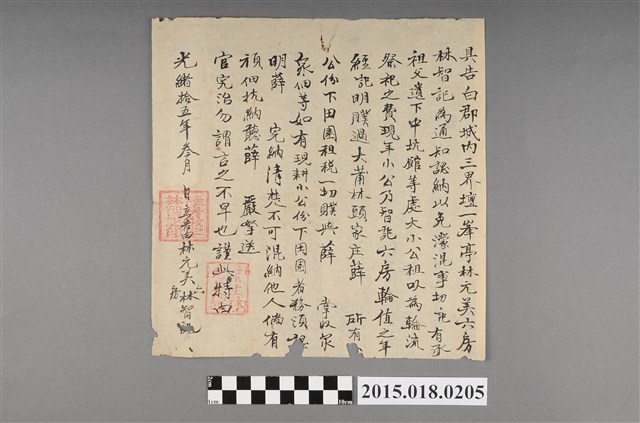 具告白郡城內三界壇一峯亭林元美六房
林智記為通知認納以免濛混事切記有承
祖父遺下中坑館等處大小公租以為輪流
祭祀之費現年小公乃智記六房輪值之年
經記明贌過大莆林頭家庄薛 所有
公份下田園租稅一切贌與薛 掌收眾
眾佃等如有現耕小公份下田園者務須認
明薛 完納清楚不可混納他人倘有
頑佃抗納聽薛 嚴拏送
官究治勿謂言之不早也謹此特白
光緒拾五年叁月 日立告白林元美六房林智記
2cm
1cm
10cm
2015.018.0205